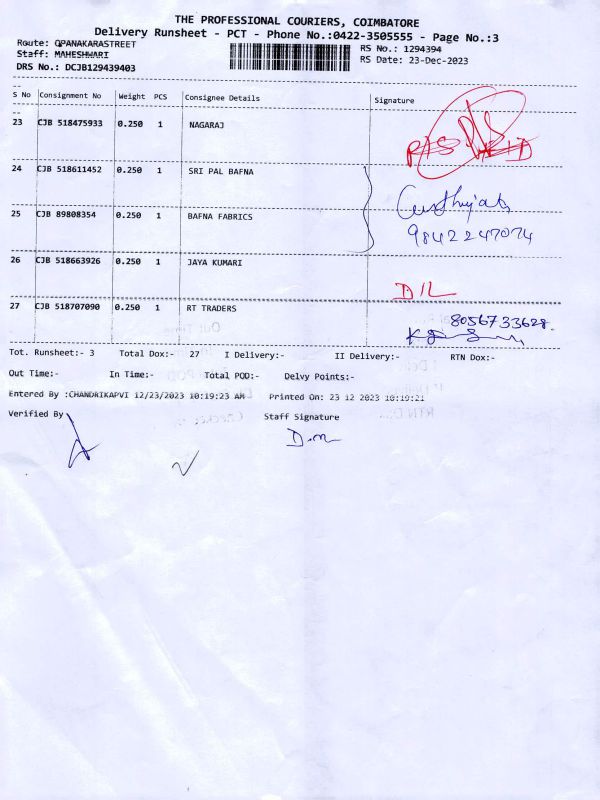 THE PROFESSIONAL COURIERS, COIMBATORE
Delivery Runsheet - PCT - Phone No.:0422-3505555 - Page No.:3
Route: OPANAKARASTREET
Staff: MAHESHWARI
RS No.: 1294394
DRS No.: DCJB129439403
RS Date: 23-Dec-2023
S No Consignment No Weight PCS Consignee Details Signature
23 CJB 518475933 0.250 1 NAGARAJ
24 CJB 518611452 0.250 1 SRI PAL BAFNA
25 CJB 89808354 0.250 1 BAFNA FABRICS
9842247074
26 CJB 518663926 0.250 1 JAYA KUMARI
D/L
27 CJB 518707090 0.250 1 RT TRADERS
8056733628.
Tot. Runsheet:- 3 Total Dox:- 27 I Delivery:- II Delivery:- RTN Dox:-
Out Time:- In Time:- Total POD:- Delvy Points:-
Entered By :CHANDRIKAPVI 12/23/2023 10:19:23 AM Printed On: 23 12 2023 10:19:21
Verified By Staff Signature